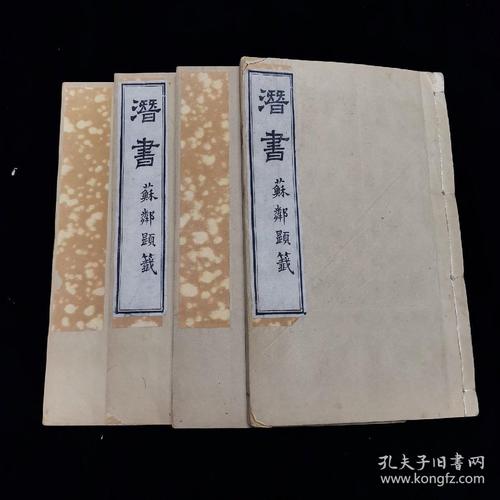 潛書
蘇鄰題籤
潛書
蘇鄰題籤
孔夫子旧书网
www.kongfz.com